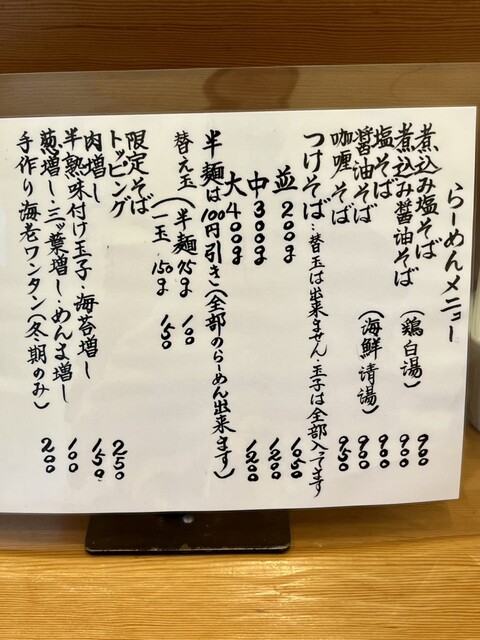 らーめんメニュー
煮込み塩そば 900
煮込み醤油そば (鶏白湯) 900
塩そば 900
醤油そば (海鮮清湯) 900
咖喱そば 950
つけそば…替玉は出来ません・玉子は全部入ってます
並 200g 1050
中 300g 1200
大 400g 1200
半麺は100円引き(全部のらーめん出来ます)
替え玉 (半麺 75g 100
一玉 150g 150
限定そば
トッピング
肉増し 250
半熟味付け玉子・海苔増し 150
葱増し・三ッ葉増し・めんま増し 100
手作り海老ワンタン(冬期のみ) 200